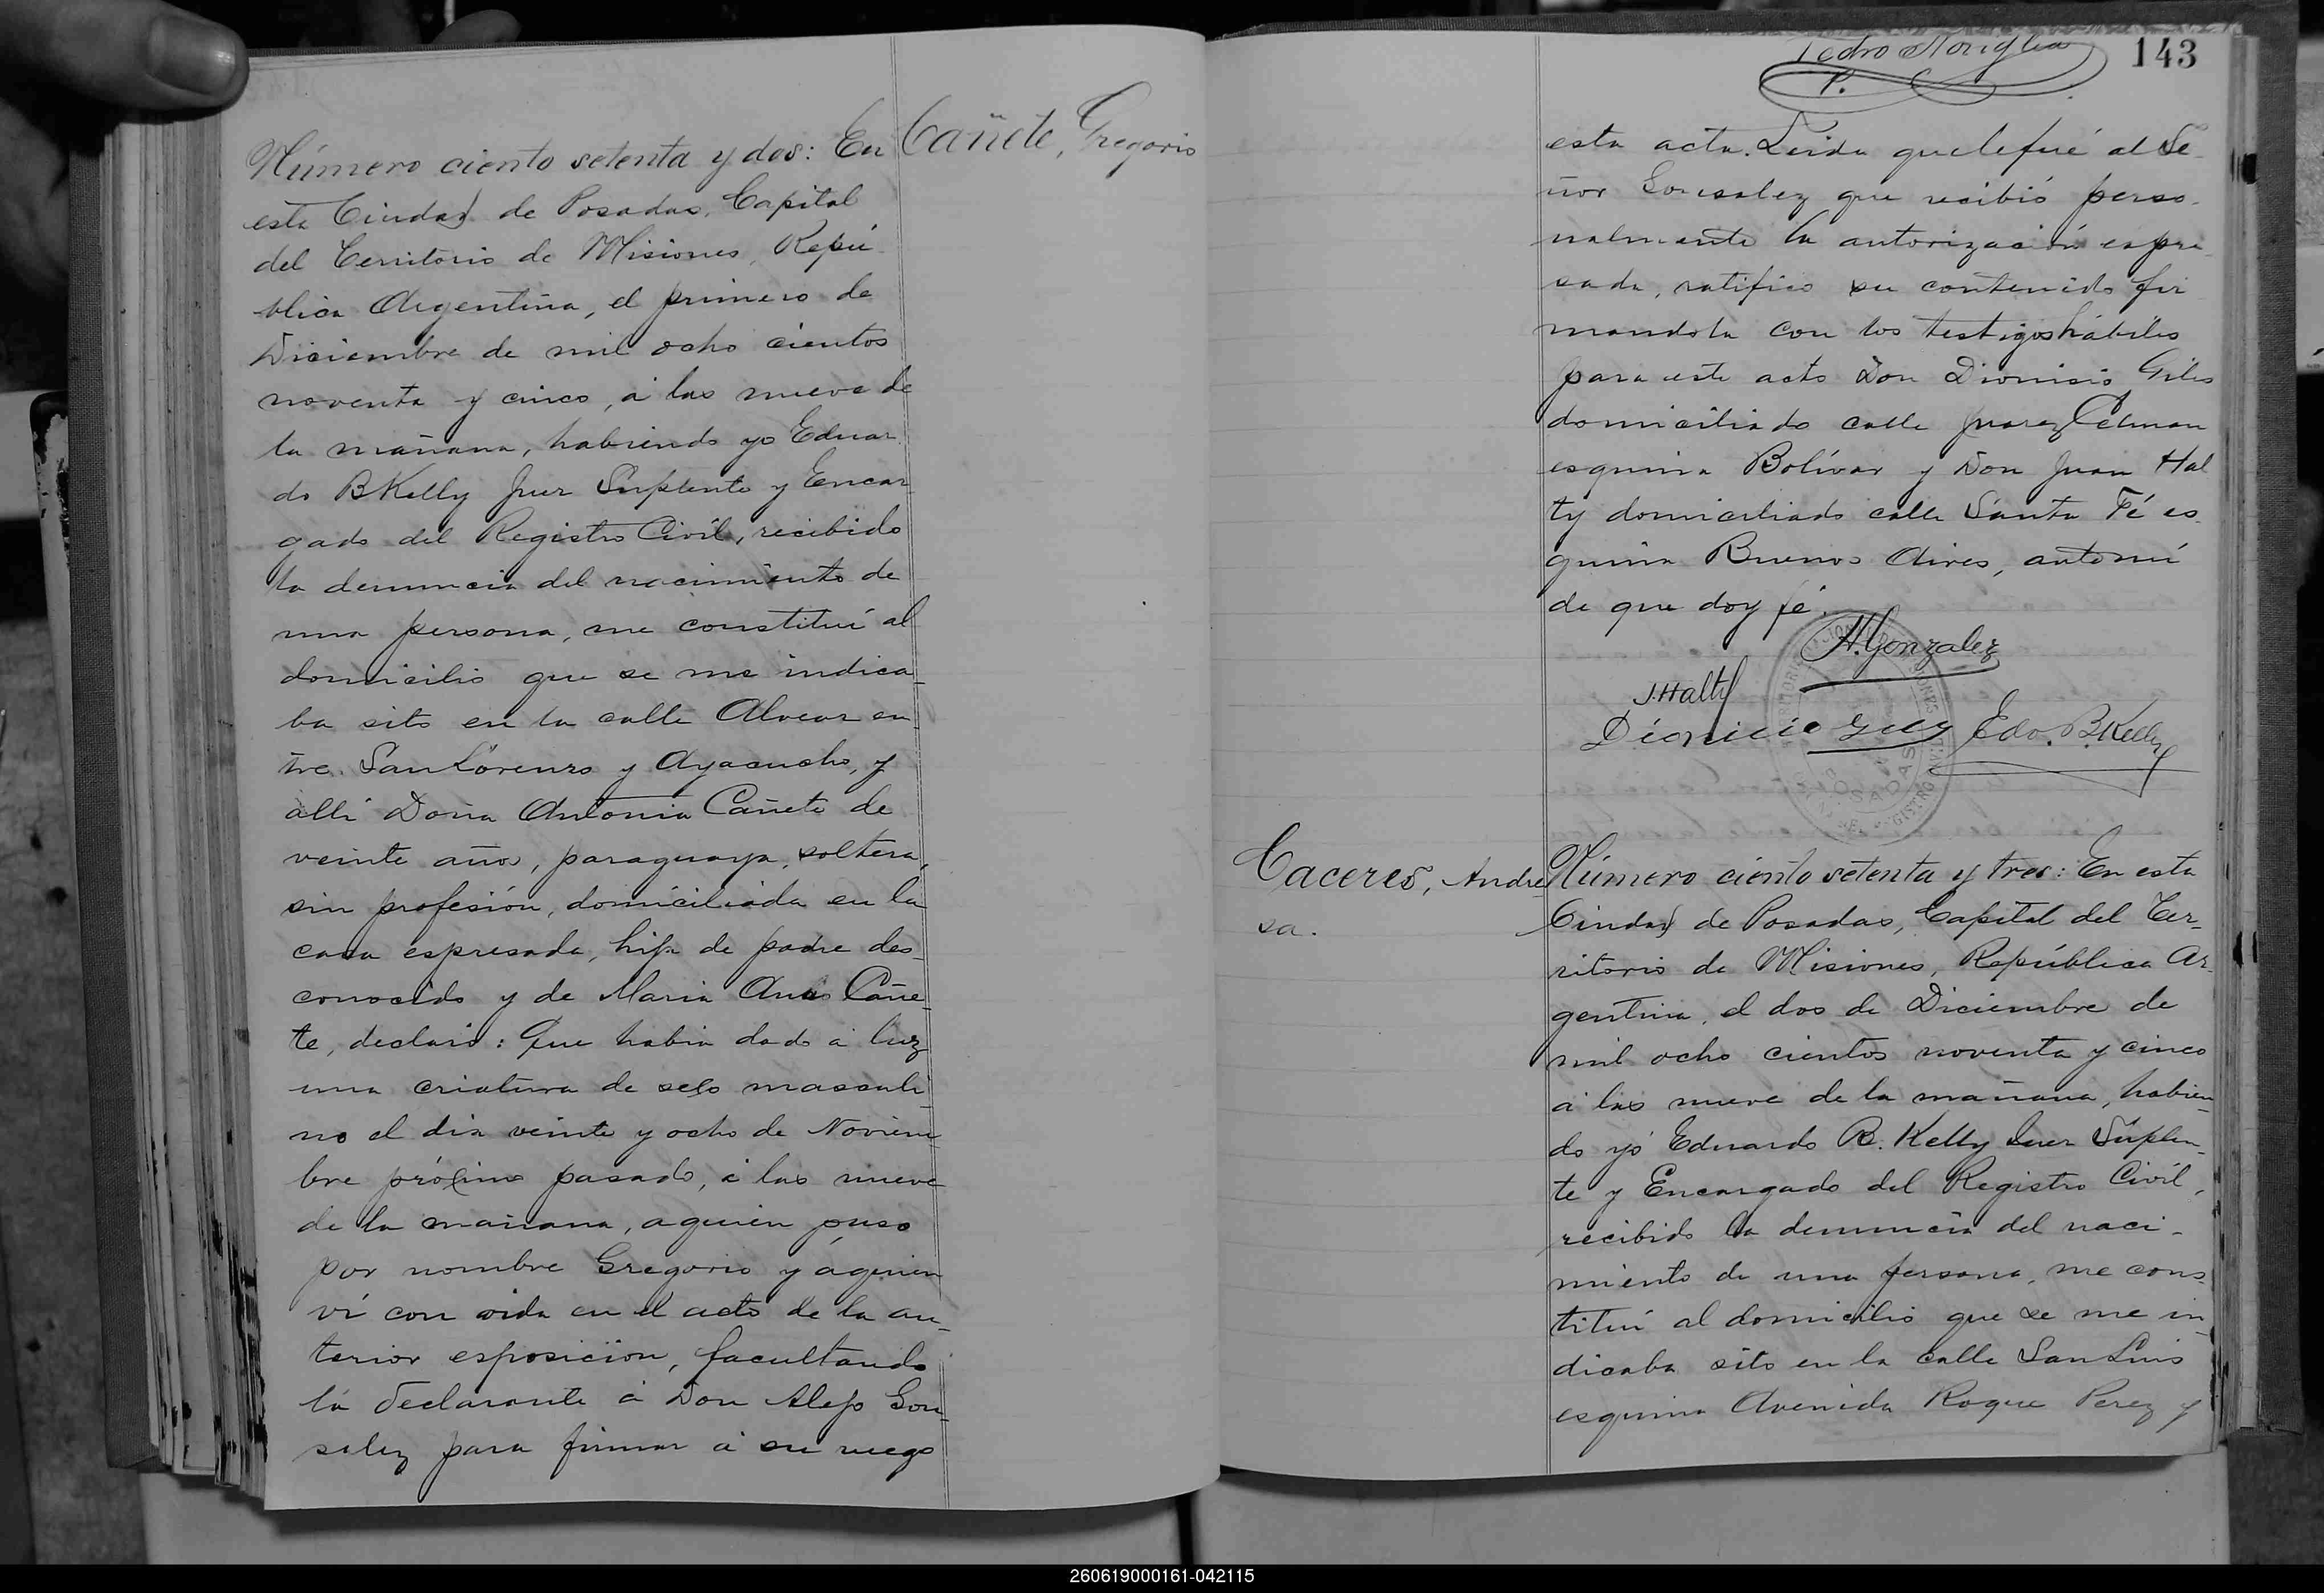 Cañete, Gregorio
Número ciento setenta y dos: En
esta Ciudad de Posadas, Capital
del Territorio de Misiones, Repú
blica Argentina, el primero de
Diciembre de mil ocho cientos
noventa y cinco, á las nueve de
la mañana, habiendo yo Eduar
do B Kelly Juez Suplente y Encar
gado del Registro Civil, recibido
la denuncia del nacimiento de
una persona, me constituí al
domicilio que se me indica-
ba sito en la calle Alvear en-
tre San Lorenzo y Ayacucho, y
allí Doña Antonia Cañete de
veinte años, paraguaya, soltera,
sin profesión, domiciliada en la
casa espresada, hija de padre des-
conocido y de Maria Ana Cañe-
te, declaró: Que habia dado á luz
una criatura de sexo masculi-
no el dia veinte y ocho de Noviem-
bre próximo pasado, á las nueve
de la mañana, a quien puso
por nombre Gregorio y á quien
ví con vida en el acto de la an-
terior esposición, facultando
la declarante á Don Alejo Gon-
salez para firmar á su ruego
143
Pedro
P.
esta acta. Leida que le fué al Se-
ñor Gonsalez que recibió perso-
nalmente la autorización espre
sada, ratificó su contenido fir
mandola con los testigos hábiles
para este acto Don Dionisio Giles
domiciliado calle Juarez Celman
esquina Bolívar y Don Juan Hal
ty domiciliado calle Santa Fé es-
quina Buenos Aires, ante mí
de que doy fé.
A. Gonzalez
J. Halty
Dionicio Edo. B. Kelly
POSADAS
Caceres, Andre
sa.
Número ciento setenta y tres: En esta
Ciudad de Posadas, Capital del Ter-
ritorio de Misiones, República Ar-
gentina, el dos de Diciembre de
mil ocho cientos noventa y cinco
á las nueve de la mañana, habien-
do yó Eduardo B. Kelly Juez Suplen-
te y Encargado del Registro Civil,
recibido la denuncia del naci-
miento de una persona, me cons-
tituí al domicilio que se me in-
dicaba sito en la calle San Luis
esquina Avenida Roque Perez y
260619000161-042115